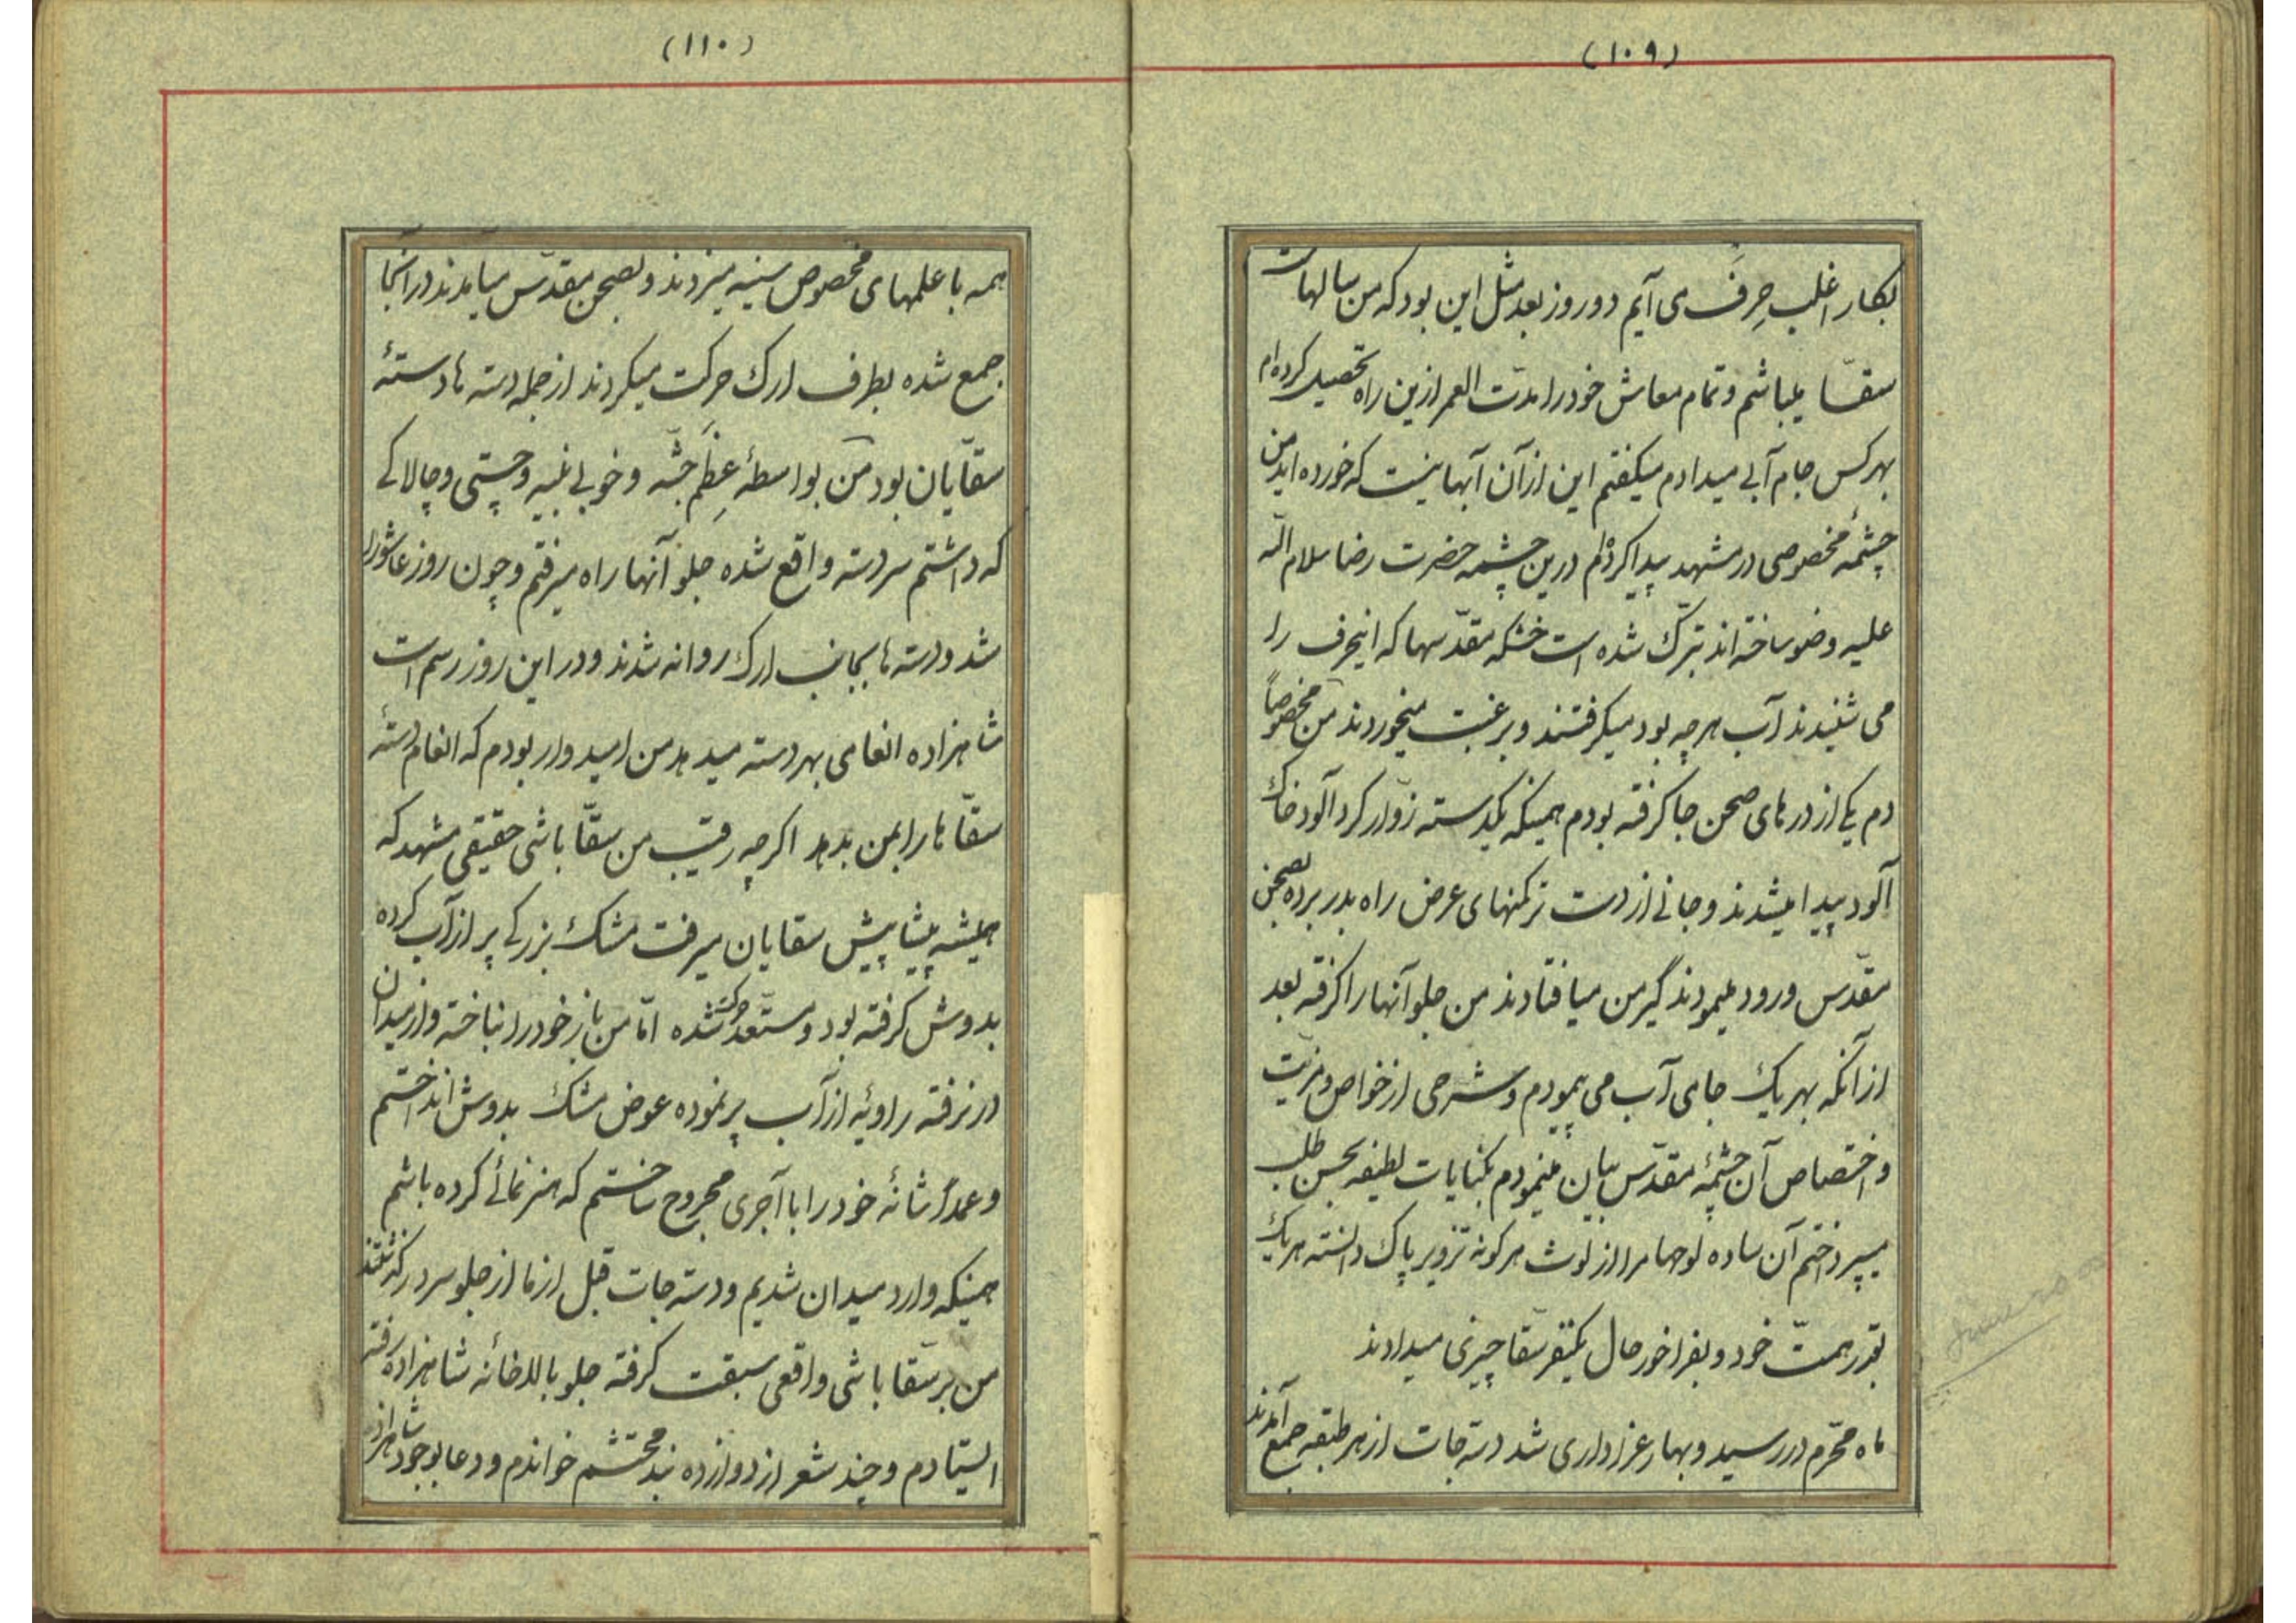 (۱۰۹)
بکار اغلب حِرَف می آیم دو روز بعد مثل این بود که من سالهاست
سقّا میباشم و تمام معاش خود را مدّت العمر ازین راه تحصیل کرده ام
بهر کس جام آبی میدادم میکفتم این از آن آبها نیست که خورده اید من
چشمهٔ مخصوصی در مشهد پیدا کرده‌ام درین چشمه حضرت رضا سلام الله
علیه وضو ساخته اند تبرّک شده است خشکه مقدّسها که اینحرف را
می شنیدند آب هرچه بود میکرفتند و برغبت میخوردند من مخصوصاً
دم یکی از درهای صحن جا کرفته بودم همینکه یکدسته زوّار کرد آلود خاک
آلود پیدا میشدند و جانی از دست ترکمنهای عرض راه بدر برده بصحن
مقدّس ورود مینمودند گیر من میافتادند من جلو آنها را کرفته بعد
از آنکه بهر یک جامی آب می پیمودم و شرحی از خواص و مزیّت
و اختصاص آن چشمهٔ مقدّس بیان مینمودم بکنایات لطیفه بحسن طلب
میپرداختم آن ساده لوحها مرا از لوث هر کونه تزویر پاک دانسته هر یک
بقدر همّت خود و بفراخور حال یکنفر سقّا چیزی میدادند
ماه محرّم در رسید و بهار عزاداری شد دسته جات از هر طبقه جمع آمدند
(۱۱۰)
همه با علمهای مخصوص سینه میزدند و بصحن مقدّس میآمدند در آنجا
جمع شده بطرف ارک حرکت میکردند از جمله دسته ها دستهٔ
سقّایان بود من بواسطهٔ عِظَم جثّه و خوبی بنیه و چستی و چالاکی
که داشتم سردسته واقع شده جلو آنها راه میرفتم و چون روز عاشورا
شد و دسته ها بجانب ارک روانه شدند و در این روز رسم است
شاهزاده انعامی بهر دسته میدهد من امیدوار بودم که انعام دستهٔ
سقّاها را بمن بدهد اکرچه رقیب من سقّا باشی حقیقی مشهد که
همیشه پیشاپیش سقایان میرفت مشک بزرکی پر از آب کرده
بدوش کرفته بود و مستعد حرکت شده امّا من باز خود را نباخته و از میدان
در نرفته راویهٔ از آب پر نموده عوض مشک بدوش انداختم
و عمداً شانهٔ خود را با آجری مجروح ساختم که هنرنمائی کرده باشم
همینکه وارد میدان شدیم و دسته جات قبل از ما از جلو سردر گذشتند
من بر سقّا باشی واقعی سبقت کرفته جلو بالاخانهٔ شاهزاده رفتم
ایستادم و چند شعر از دوازده بند محتشم خواندم و دعا بوجود شاهزاده